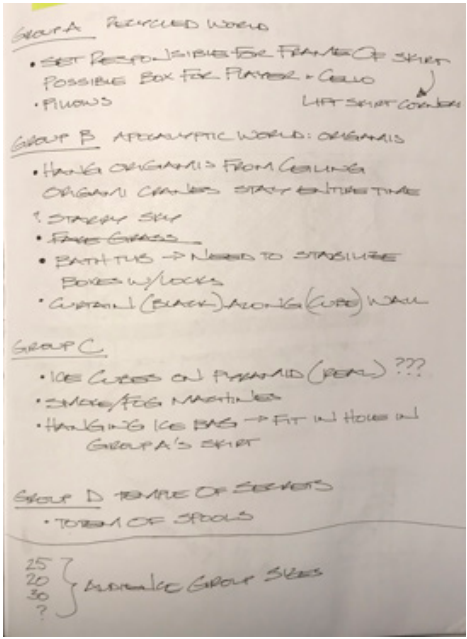 GROUP A RECYCLED WORLD
• SET RESPONSIBLE FOR FRAME OF SKIRT
POSSIBLE BOX FOR PLAYER + CELLO
• PILLOWS LIFT SKIRT CORNERS
GROUP B APOCALYPTIC WORLD: ORIGAMIS
• HANG ORIGAMIS FROM CEILING
ORIGAMI CRANES STAY ENTIRE TIME
? STARRY SKY
• FAKE GRASS
• BATH TUB → NEED TO STABILIZE
BOXES W/LOCKS
• CURTAIN (BLACK) ALONG (CUBE) WALL
GROUP C
• ICE CUBES ON PYRAMID (REAL) ???
• SMOKE/FOG MACHINES
• HANGING ICE BAG → FIT IN HOLE IN
GROUP A'S SKIRT
GROUP D TEMPLE OF SECRETS
• TOTEM OF SPOOLS
25
20
30
?
} AUDIENCE GROUP SIZES